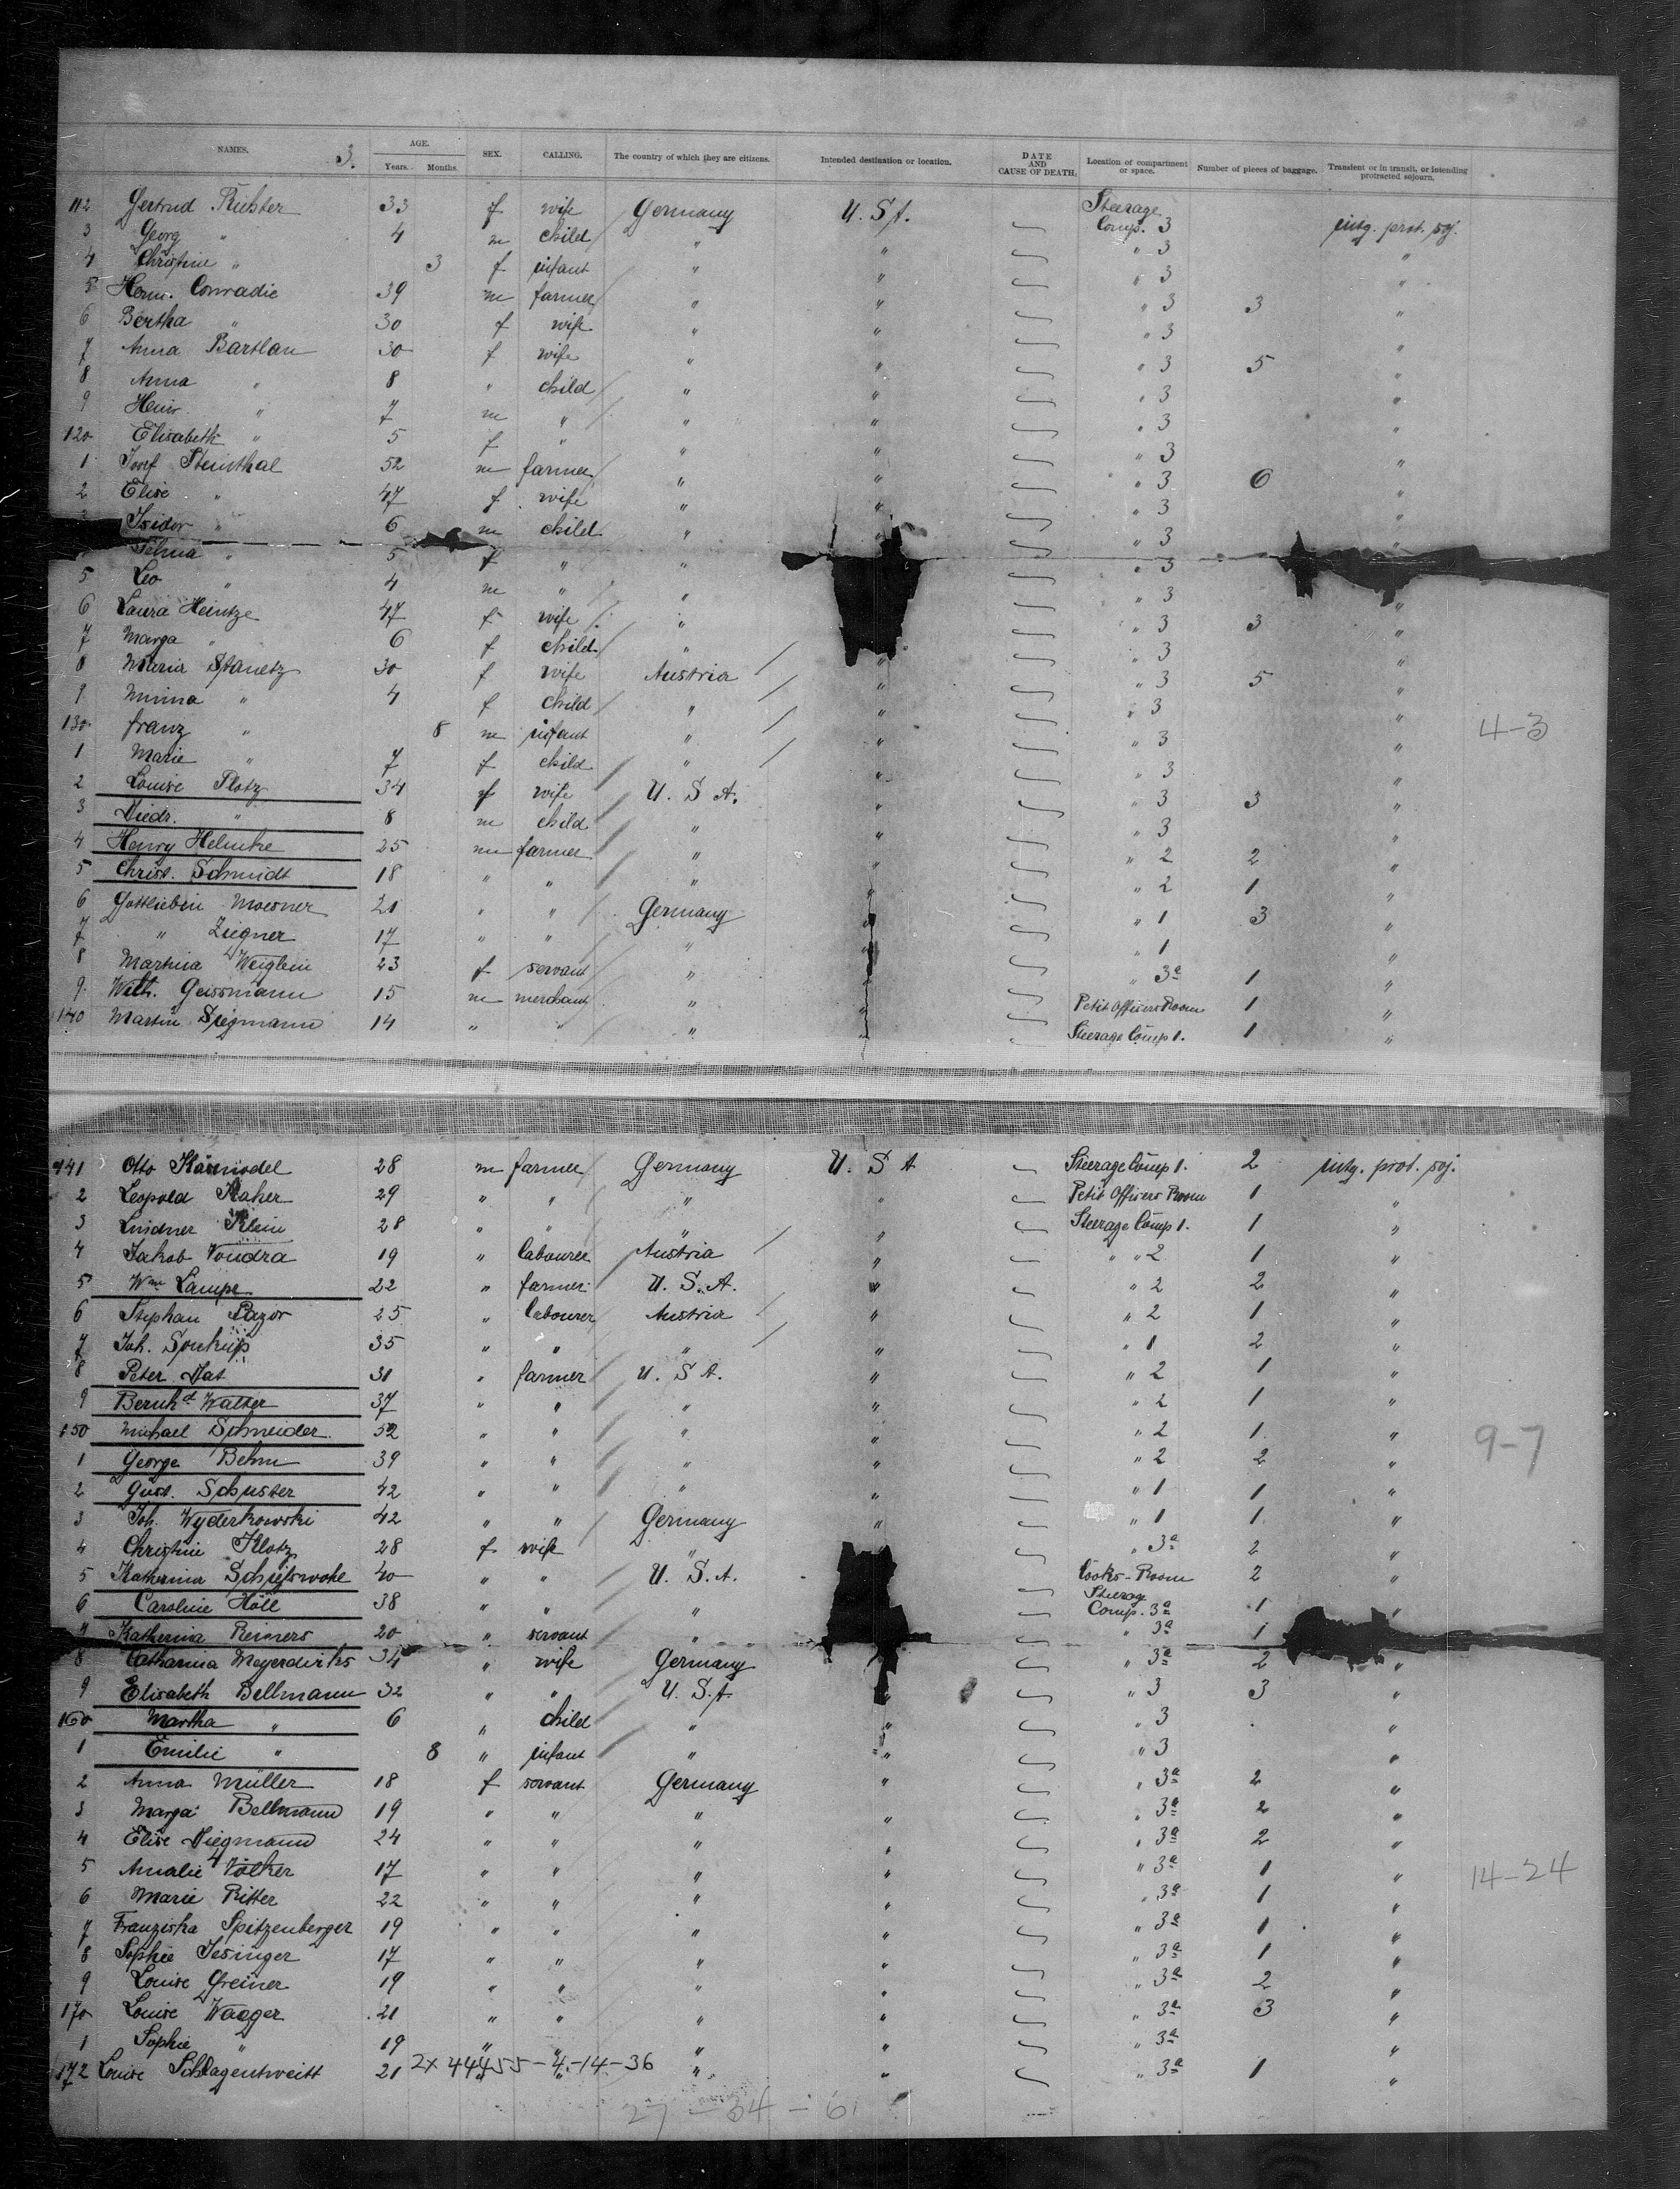 NAMES. 3. AGE. Years. Months. SEX. CALLING. The country of which they are citizens. Intended destination or location. DATE AND CAUSE OF DEATH. Location of compartment or space. Number of pieces of baggage. Transient or in transit, or intending protracted sojourn.
112 Gertrud Richter 33 f wife Germany U. S A. Steerage Comp. 3 intg. prot. soj.
3 Georg " 4 m child " " " 3 "
4 Christine " 3 f infant " " " 3 "
5 Herm. Conradie 39 m farmer " " " 3 3 "
6 Bertha " 30 f wife " " " 3 "
7 Anna Bartlau 30 f wife " " " 3 5 "
8 Anna " 8 " child " " " 3 "
9 Heinr. " 7 m " " " " 3 "
120 Elisabeth " 5 f " " " " 3 "
1 Josef Steinthal 52 m farmer " " " 3 6 "
2 Elise " 47 f wife " " " 3 "
Isidor " 6 m child " " " 3 "
" 5 f " " " 3
5 Leo " 4 m " " " 3 "
6 Laura Heintze 47 f wife " " 3 3 "
7 Marga " 6 f child " " " 3 "
8 Maria Stanetz 30 f wife Austria " " 3 5 "
9 Minna " 4 f child " " " 3 "
130 franz " 8 m infant " " " 3 " 4-3
1 Marie " 7 f child " " " 3 "
2 Louise Plotz 34 f wife U. S A. " " 3 3 "
3 Diedr. " 8 m child " " " 3 "
4 Henry Helmke 25 m farmer " " " 2 2 "
5 Christ. Schmidt 18 " " " " " 2 1 "
6 Gottliebin Moesner 21 " " Germany " " 1 3 "
7 " Ziegner 17 " " " " " 1 "
8 Martina Weiglein 23 f servant " " " 3a 1 "
9 Wilh. Geissmann 15 m merchant " " Petit Officers Room 1 "
140 Martin Siegmann 14 " " " " Steerage Comp 1. 1 "
141 Otto 28 m farmer Germany U. S A Steerage Comp 1. 2 intg. prot. soj.
2 Leopold 29 " " " " Petit Officers Room 1 "
3 Lindner Klein 28 " " " " Steerage Comp 1. 1 "
4 Jakob Vondra 19 " labourer Austria " " " 2 1 "
5 Wm Lampe 22 " farmer U. S. A. " " 2 2 "
6 Stephan Pazor 25 " labourer Austria " " 2 1 "
7 Joh. Soukup 35 " " " " " 1 2 "
8 Peter Dat 31 " farmer U. S A. " " 2 1 "
9 Bernhd Walter 37 " " " " " 2 1 "
150 Michael Schneider 52 " " " " " 2 1 " 9-7
1 George Behm 39 " " " " " 2 2 "
2 Gust. Schuster 42 " " " " " 1 1 "
3 Joh. Wyderkowski 42 " " Germany " " 1 1 "
4 Christine Klotz 28 f wife " " 3a 2 "
5 Katherina 40 " " U. S. A. Cooks-Room 2 "
6 Caroline Höll 38 " " " Steerag Comp. 3a 1 "
7 Katherina Reimers 20 " servant " " 3a 1
8 Catharina Meyerdirks 34 " wife Germany " 3a 2 "
9 Elisabeth Bellmann 32 " " U. S. A. " " 3 3 "
160 Martha " 6 " child " " " 3 "
1 Emilie " 8 " infant " " " 3 "
2 Anna Müller 18 f servant Germany " " 3a 2 "
3 Marga. Bellmann 19 " " " " " 3a 2 "
4 Elise Diegmann 24 " " " " " 3a 2 "
5 Amalie Völker 17 " " " " " 3a 1 " 14-24
6 Marie Ritter 22 " " " " " 3a 1 "
7 Franziska Spitzenberger 19 " " " " " 3a 1 "
8 Sophie Jesinger 17 " " " " " 3a 1 "
9 Louise Greiner 19 " " " " " 3a 2 "
170 Louise Waeger 21 " " " " " 3a 3 "
1 Sophie " 19 " " " " " 3a "
172 Louise Schlagentweitt 21 2X 44455-4-14-36 " " " 3a 1 "
27-34-61